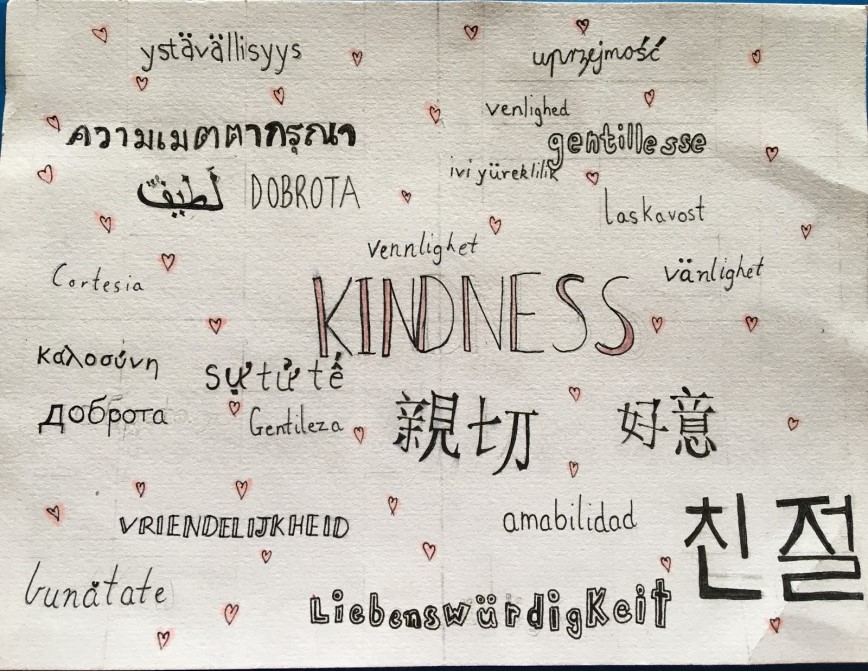 ystävällisyys
uprzejmość
venlighed
ความเมตตากรุณา
gentillesse
ivi yüreklilik
لَطيف
DOBROTA
laskavost
vennlighet
vänlighet
Cortesia
KINDNESS
καλοσύνη
sự tử tế
доброта
Gentileza
親切
好意
VRIENDELIJKHEID
amabilidad
친절
bunătate
LiebenswürdigKeit